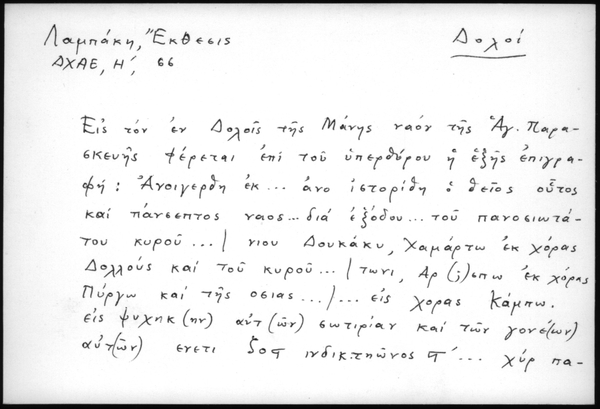 Λαμπάκη, Ἔκθεσις
Δολοί
ΔΧΑΕ, Η΄, 66
Εἰς τόν ἐν Δολοῖς τῆς Μάνης ναόν τῆς Ἁγ. Παρα-
σκευῆς φέρεται ἐπί τοῦ ὑπερθύρου ἡ ἑξῆς ἐπιγρα-
φή: Ἀνοιγερθη ἐκ... ἀνο ἱστορίθη ὁ θεῖος οὗτος
καί πάνσεπτος ναος... διά ἐξόδου... τοῦ πανοσιωτά-
του κυροῦ ...| νιου Δουκάκυ, Χαμάρτω ἐκ χόρας
Δολλούς καί τοῦ κυροῦ...|τωνι, Αρ(;)σπω ἐκ χόρης
Πύργω καί τῆς οσιας.../... εἰς χορας Κάμπω.
εἰς ψυχηκ(ην) αὐτ(ῶν) σωτιρίαν καί τῶν γονέ(ων)
αὐτ(ῶν) ενετι ζοϛ ινδικτηῶνος ϛ΄... χύρ πα-